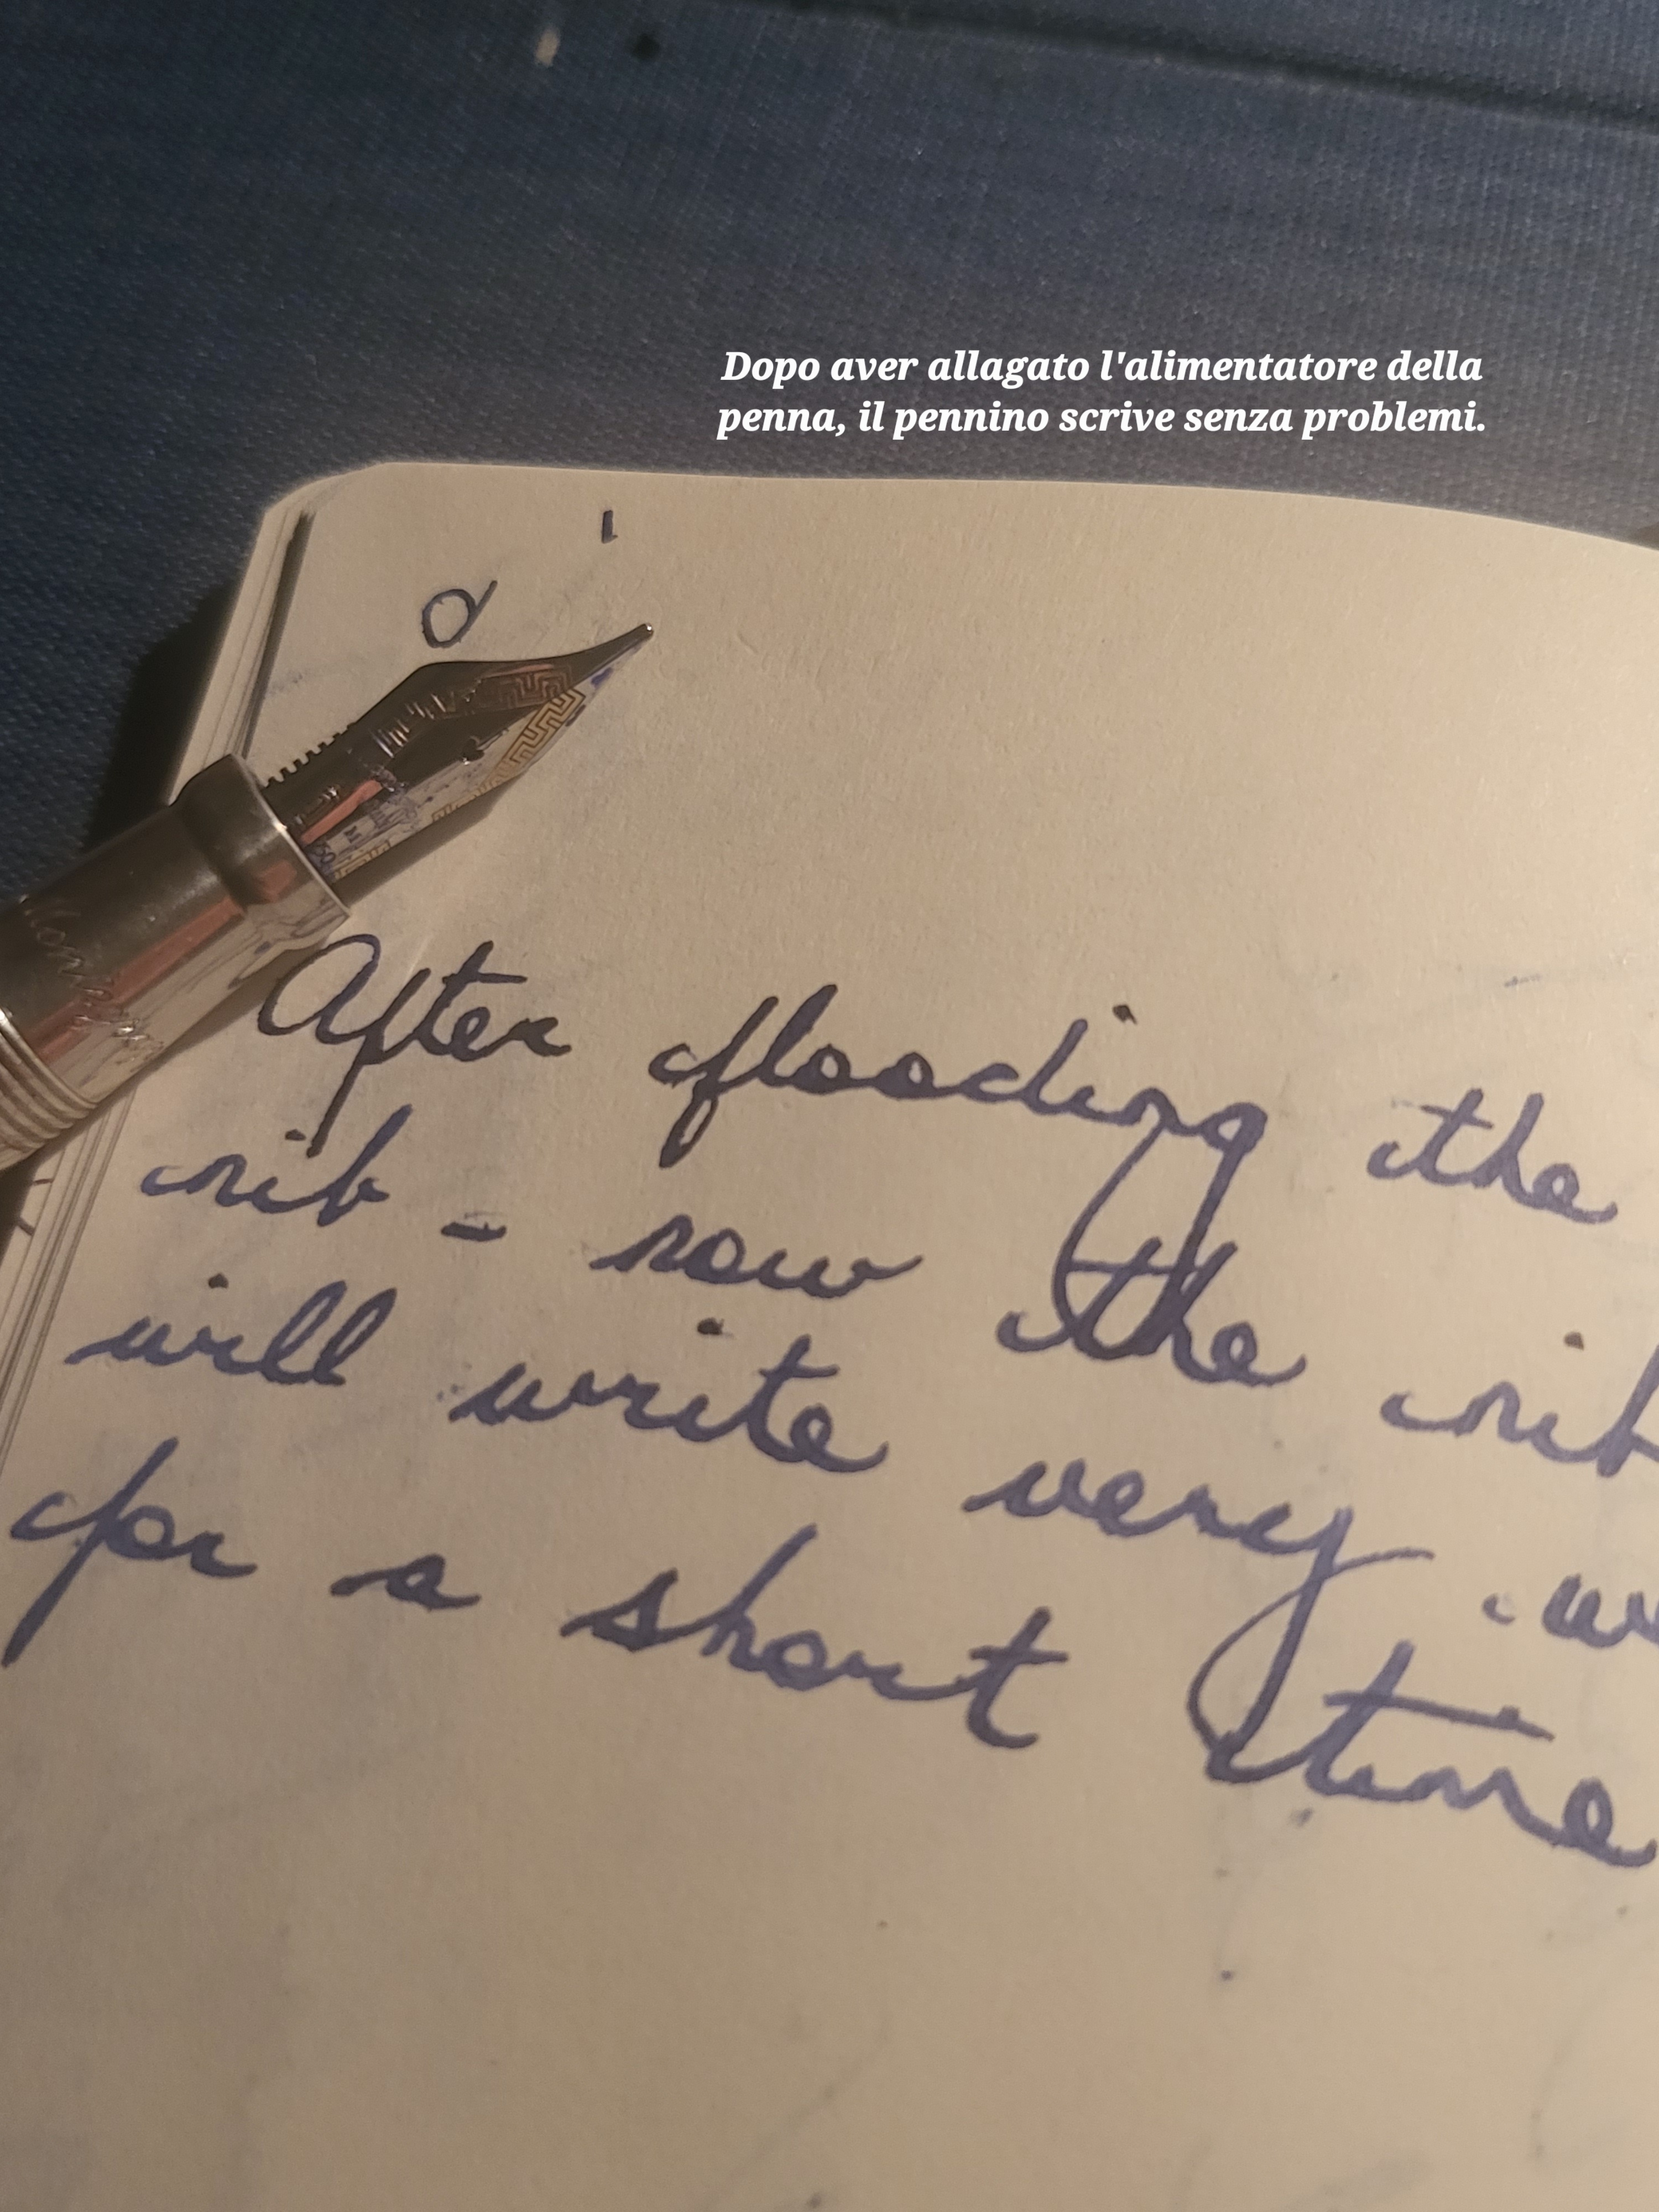 Dopo aver allagato l'alimentatore della
penna, il pennino scrive senza problemi.
After flooding the
nib - now the nib
will write very
for a short time